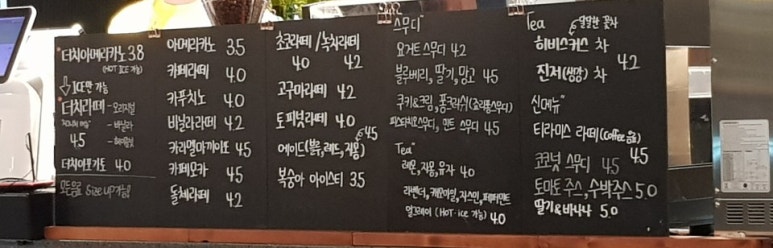 더치아메리카노 3.8
(HOT ICE 가능)
ICE만 가능
더치라떼 - 오리지널
- 바닐라
4.5
더치아포가토 4.0
모든음료 Size up 가능!
아메리카노 3.5
카페라떼 4.0
카푸치노 4.0
바닐라라떼 4.2
카라멜마끼아또 4.5
카페모카 4.5
돌체라떼 4.2
초코라떼 / 녹차라떼
4.0 4.2
고구마라떼 4.2
토피넛라떼 4.0
에이드(블루, 레몬, 자몽) 4.5
복숭아 아이스티 3.5
스무디
요거트 스무디 4.2
블루베리, 딸기, 망고 4.5
쿠키&크림, 퐁크러쉬(초콜릿스무디)
피스타치오스무디, 민트 스무디 4.5
Tea
레몬, 자몽, 유자 4.0
라벤더, 캐모마일, 쟈스민, 페퍼민트
얼그레이 (HOT·ice 가능) 4.0
Tea 달달한 꽃차
히비스커스 차
4.2
진저(생강) 차
신메뉴
티라미스 라떼 (Coffee 음료)
4.5
코코넛 스무디 4.5
토마토주스, 수박주스 5.0
딸기&바나나 5.0